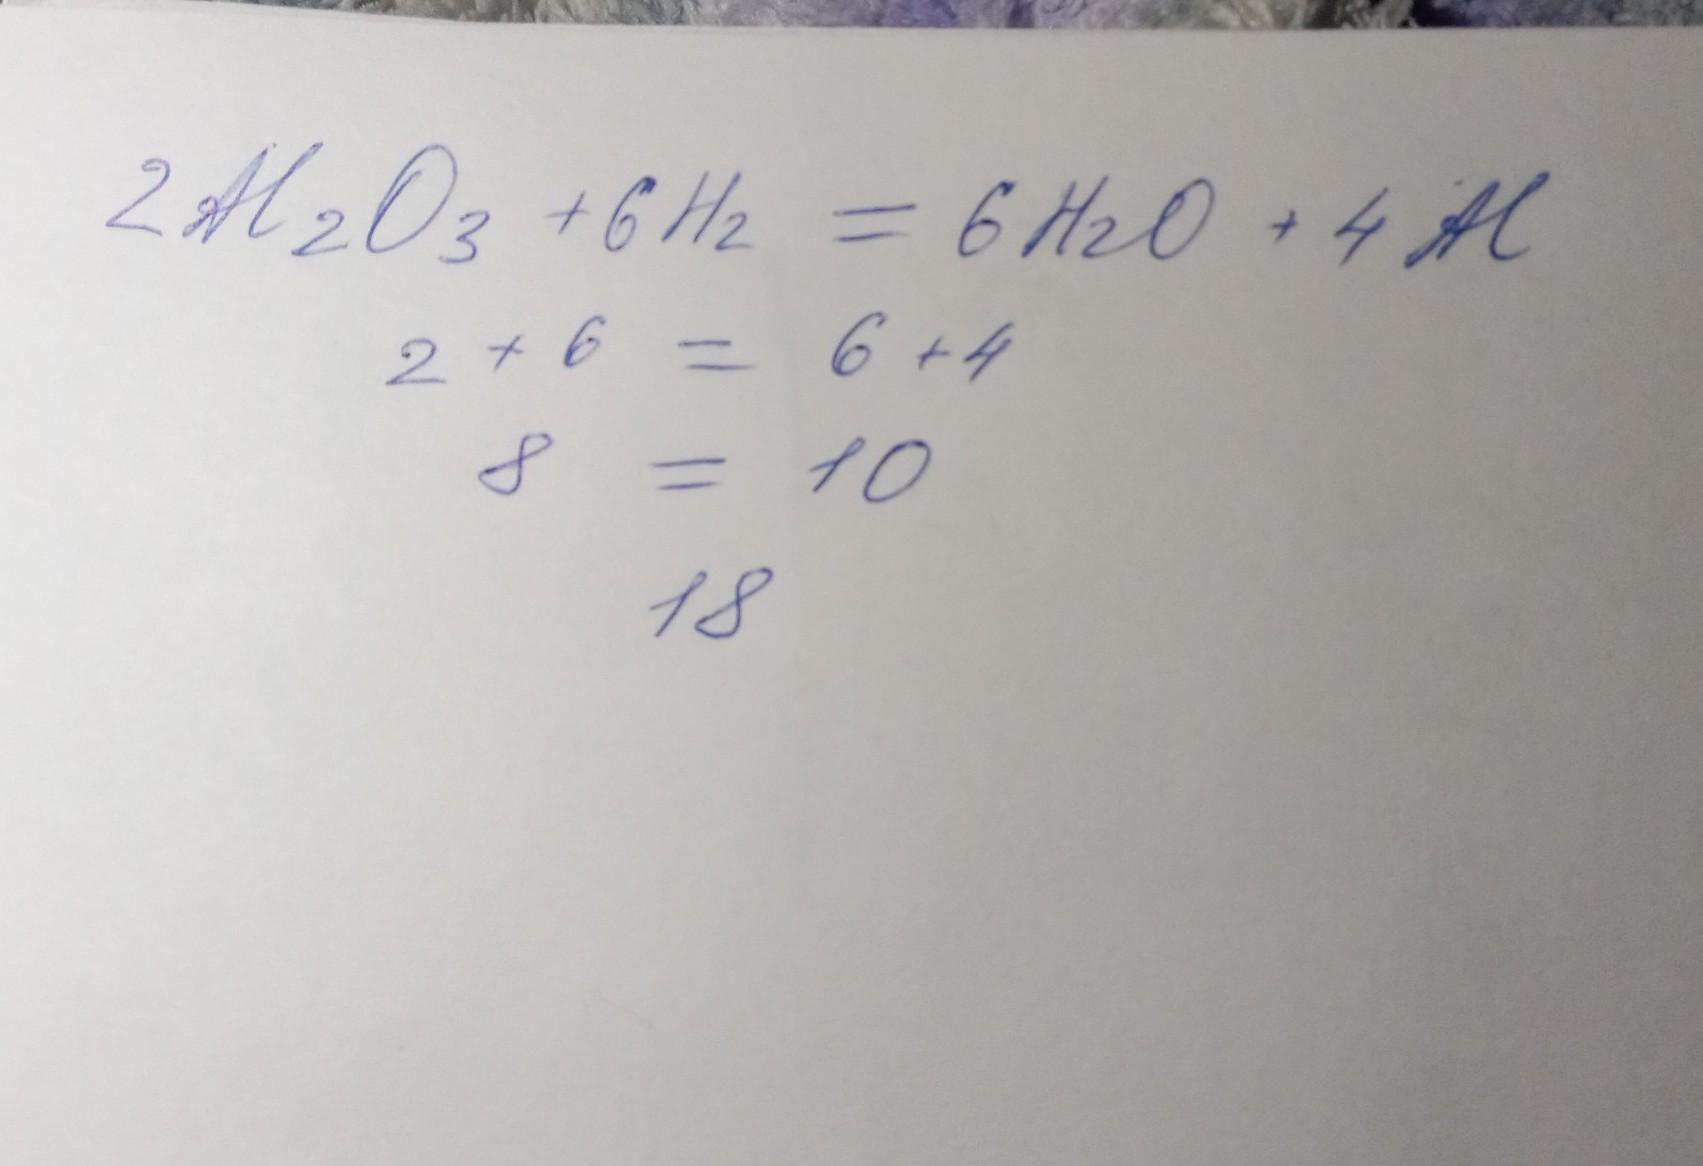 2Al₂O₃ + 6H₂ = 6H₂O + 4Al
2 + 6 = 6 + 4
8 = 10
18